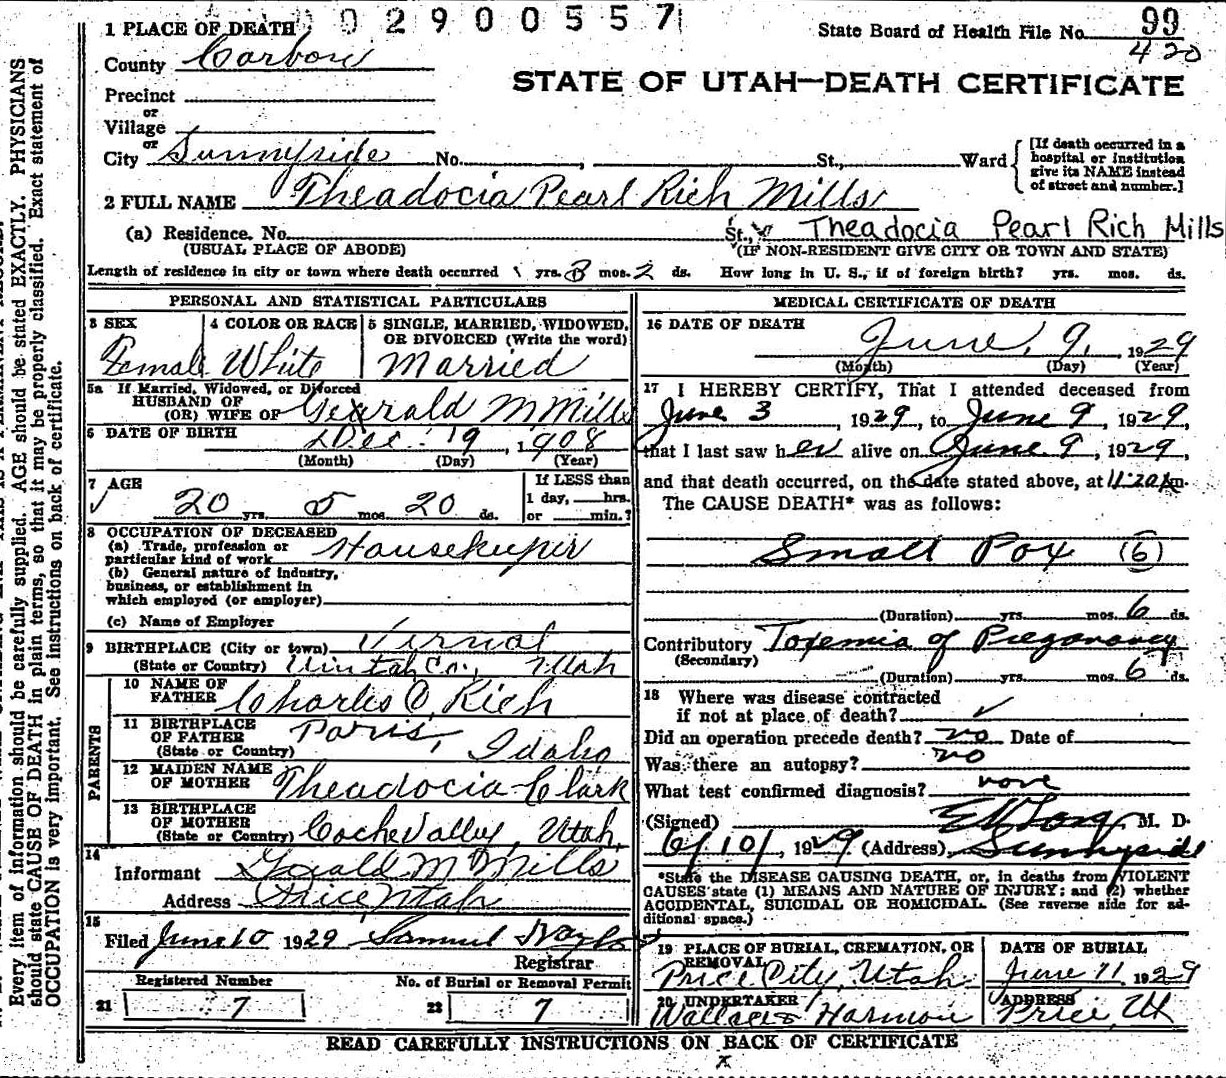 02900557
1 PLACE OF DEATH
State Board of Health File No. 99
420
County Carbon
STATE OF UTAH—DEATH CERTIFICATE
Precinct
or
Village
or
City Sunnyside No. , St., Ward
[If death occurred in a hospital or institution give its NAME instead of street and number.]
2 FULL NAME Theadocia Pearl Rich Mills
(a) Residence. No. St., Theadocia Pearl Rich Mills
(USUAL PLACE OF ABODE) (IF NON-RESIDENT GIVE CITY OR TOWN AND STATE)
Length of residence in city or town where death occurred yrs. 3 mos. 2 ds. How long in U. S., if of foreign birth? yrs. mos. ds.
PERSONAL AND STATISTICAL PARTICULARS
3 SEX
Female
4 COLOR OR RACE
White
5 SINGLE, MARRIED, WIDOWED, OR DIVORCED (Write the word)
Married
5a If Married, Widowed, or Divorced
HUSBAND OF
(OR) WIFE OF Gerald M Mills
6 DATE OF BIRTH Dec. 19, 1908
(Month) (Day) (Year)
7 AGE
20 yrs. 5 mos. 20 ds.
If LESS than
1 day, hrs.
or min.?
8 OCCUPATION OF DECEASED
(a) Trade, profession or
particular kind of work Housekeeper
(b) General nature of industry,
business, or establishment in
which employed (or employer)
(c) Name of Employer
9 BIRTHPLACE (City or town) Vernal
(State or Country) Uintah Co., Utah
PARENTS
10 NAME OF
FATHER Charles C. Rich
11 BIRTHPLACE
OF FATHER Paris, Idaho
(State or Country)
12 MAIDEN NAME
OF MOTHER Theadocia Clark
13 BIRTHPLACE
OF MOTHER
(State or Country) Cache Valley, Utah
14
Informant Gerald M Mills
Address Price, Utah
15
Filed June 10 1929 Samuel
Registrar
Registered Number
21 7
No. of Burial or Removal Permit
22 7
MEDICAL CERTIFICATE OF DEATH
16 DATE OF DEATH
June, 9, 1929
(Month) (Day) (Year)
17 I HEREBY CERTIFY, That I attended deceased from
June 3, 1929, to June 9, 1929,
that I last saw her alive on June 9, 1929,
and that death occurred, on the date stated above, at 11:20 m.
The CAUSE DEATH* was as follows:
Small Pox (6)
(Duration) yrs. mos. 6 ds.
Contributory Toxemia of Preganancy
(Secondary)
(Duration) yrs. mos. 6 ds.
18 Where was disease contracted
if not at place of death?
Did an operation precede death? no Date of
Was there an autopsy? no
What test confirmed diagnosis? none
(Signed) M. D.
6/10/, 1929 (Address) Sunnyside
*State the DISEASE CAUSING DEATH, or, in deaths from VIOLENT
CAUSES state (1) MEANS AND NATURE OF INJURY; and (2) whether
ACCIDENTAL, SUICIDAL OR HOMICIDAL. (See reverse side for ad-
ditional space.)
19 PLACE OF BURIAL, CREMATION, OR
REMOVAL
Price City, Utah
DATE OF BURIAL
June 11, 1929
20 UNDERTAKER
Wallace & Harmon
ADDRESS
Price, Ut
READ CAREFULLY INSTRUCTIONS ON BACK OF CERTIFICATE
Every item of information should be carefully supplied. AGE should be stated EXACTLY. PHYSICIANS
should state CAUSE OF DEATH in plain terms, so that it may be properly classified. Exact statement of
OCCUPATION is very important. See instructions on back of certificate.